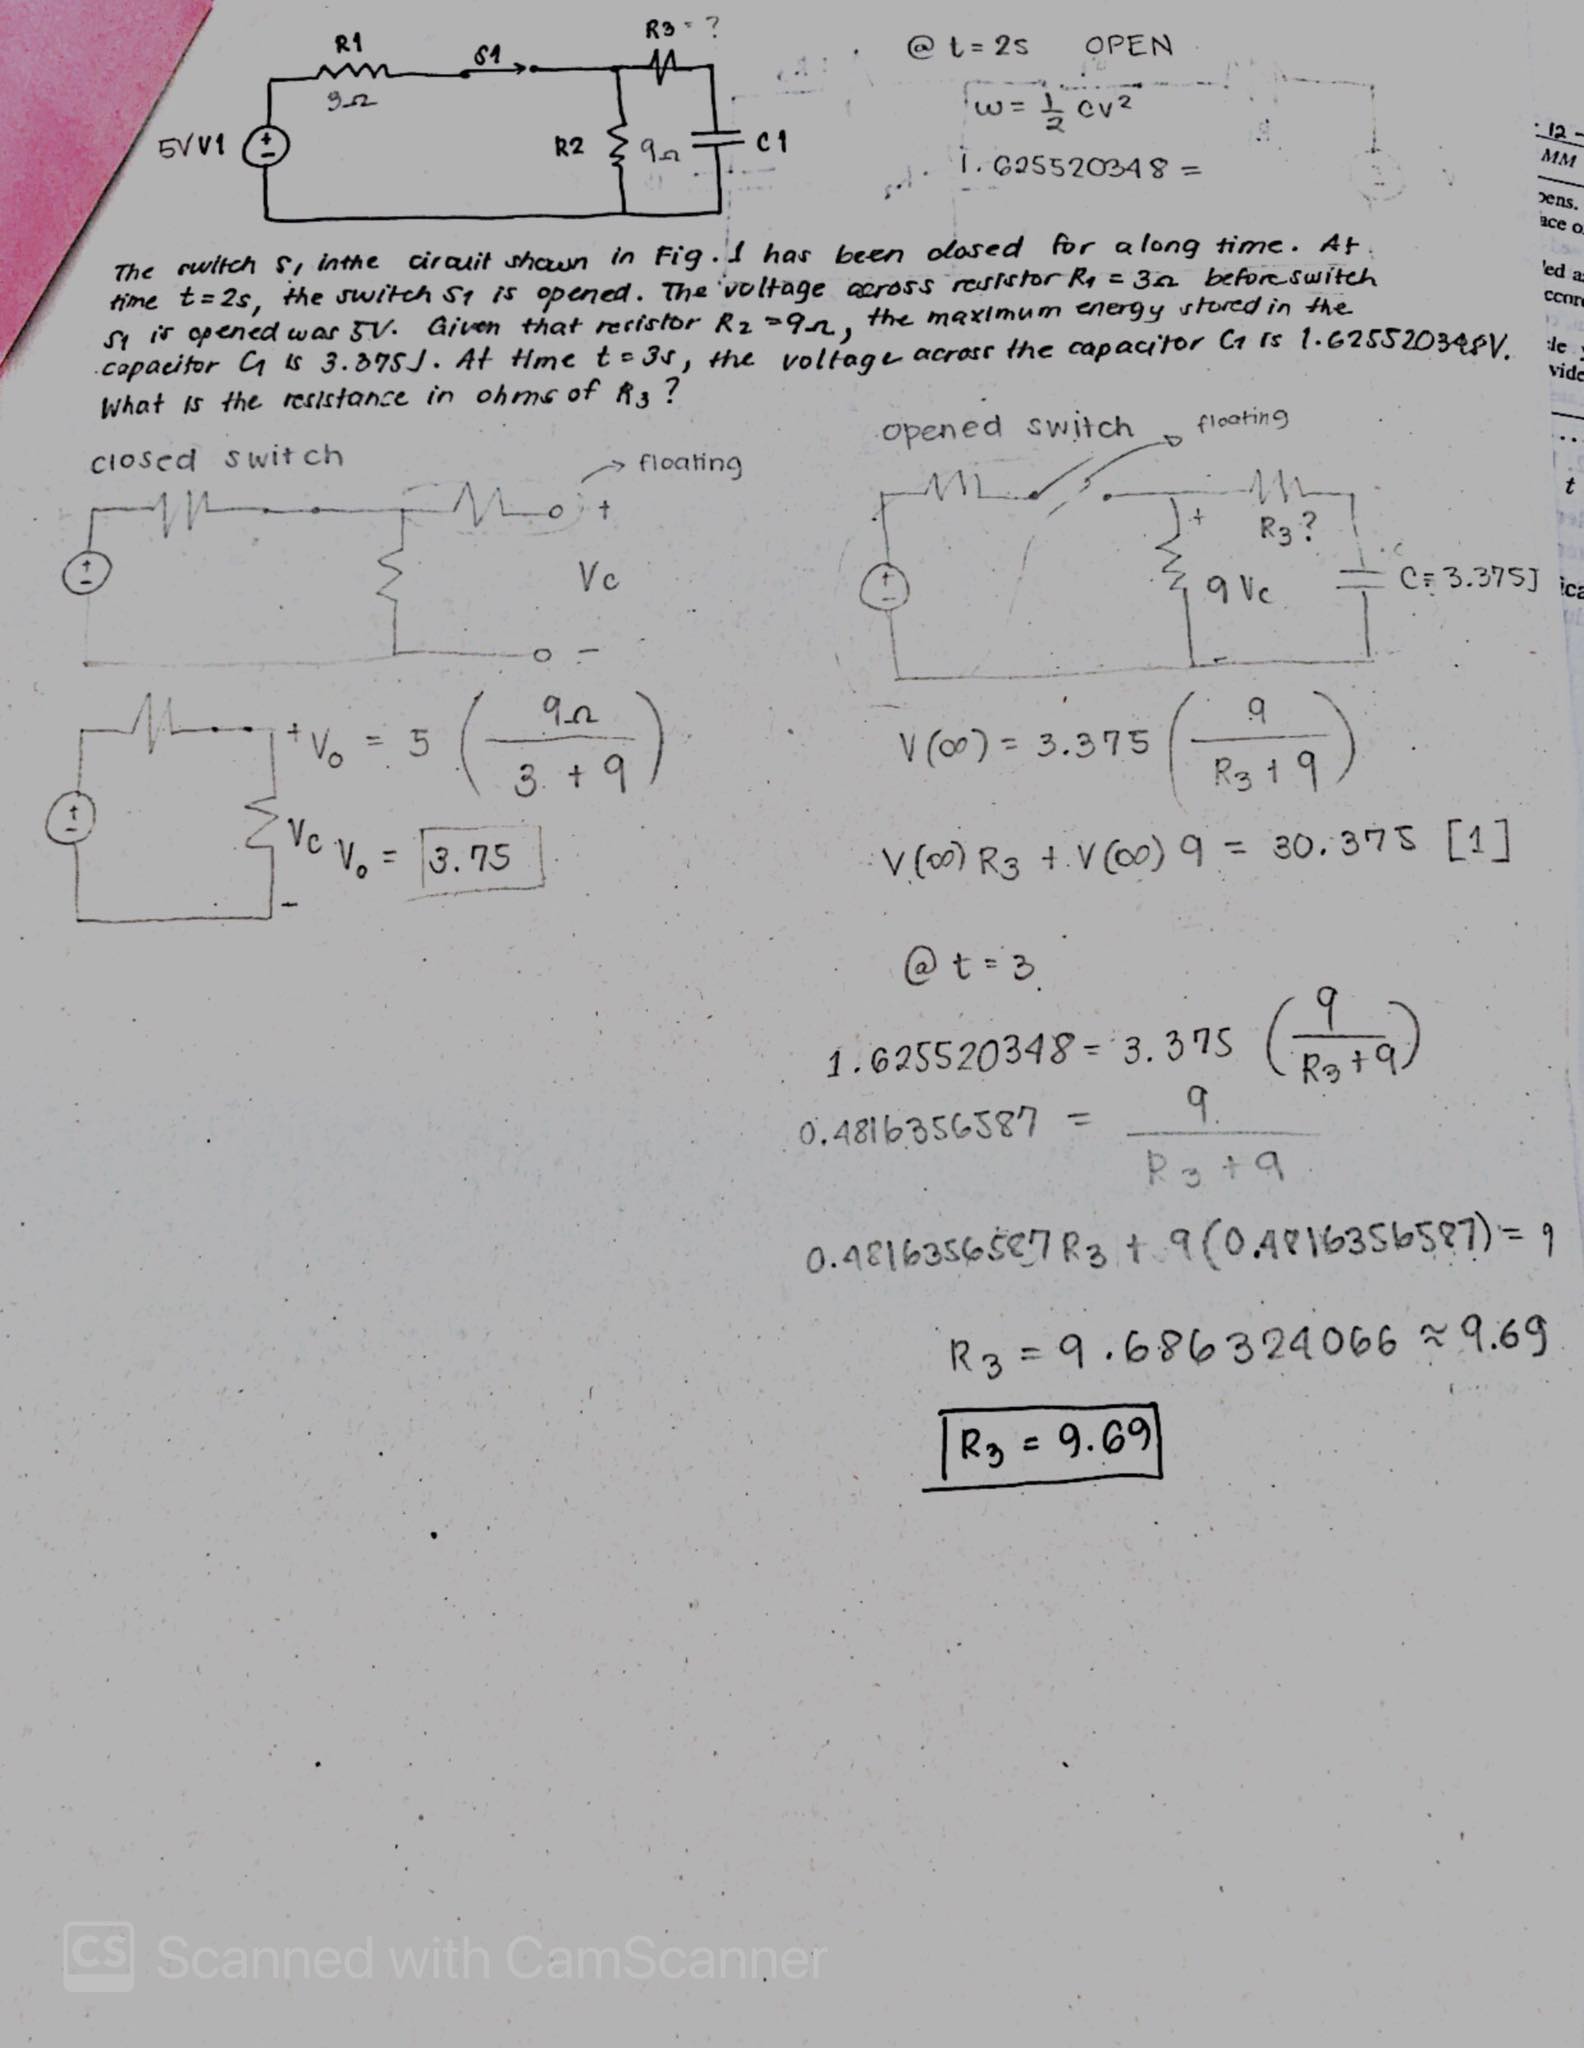 R1
S1
R3 = ?
@ t = 2s OPEN
3Ω
w = 1/2 cv²
5V V1
R2
9Ω
C1
1.625520348 =
The switch S1 inthe circuit shown in Fig. 1 has been closed for a long time. At
time t=2s, the switch S1 is opened. The voltage across resistor R1 = 3Ω before switch
S1 is opened was 5V. Given that resistor R2 = 9Ω, the maximum energy stored in the
capacitor C1 is 3.375J. At time t = 3s, the voltage across the capacitor C1 is 1.625520348V.
What is the resistance in ohms of R3?
closed switch
floating
+
Vc
-
opened switch
floating
R3?
+
9 Vc
-
C = 3.375J
+ Vo = 5 (9Ω / 3 + 9)
Vc Vo = 3.75
-
V(∞) = 3.375 (9 / R3 + 9)
V(∞) R3 + V(∞) 9 = 30.375 [1]
@ t = 3
1.625520348 = 3.375 (9 / R3 + 9)
0.4816356587 = 9 / R3 + 9
0.4816356587 R3 + 9(0.4816356587) = 9
R3 = 9.686324066 ≈ 9.69
R3 = 9.69
12
MM
pens.
ace o
t
CS Scanned with CamScanner